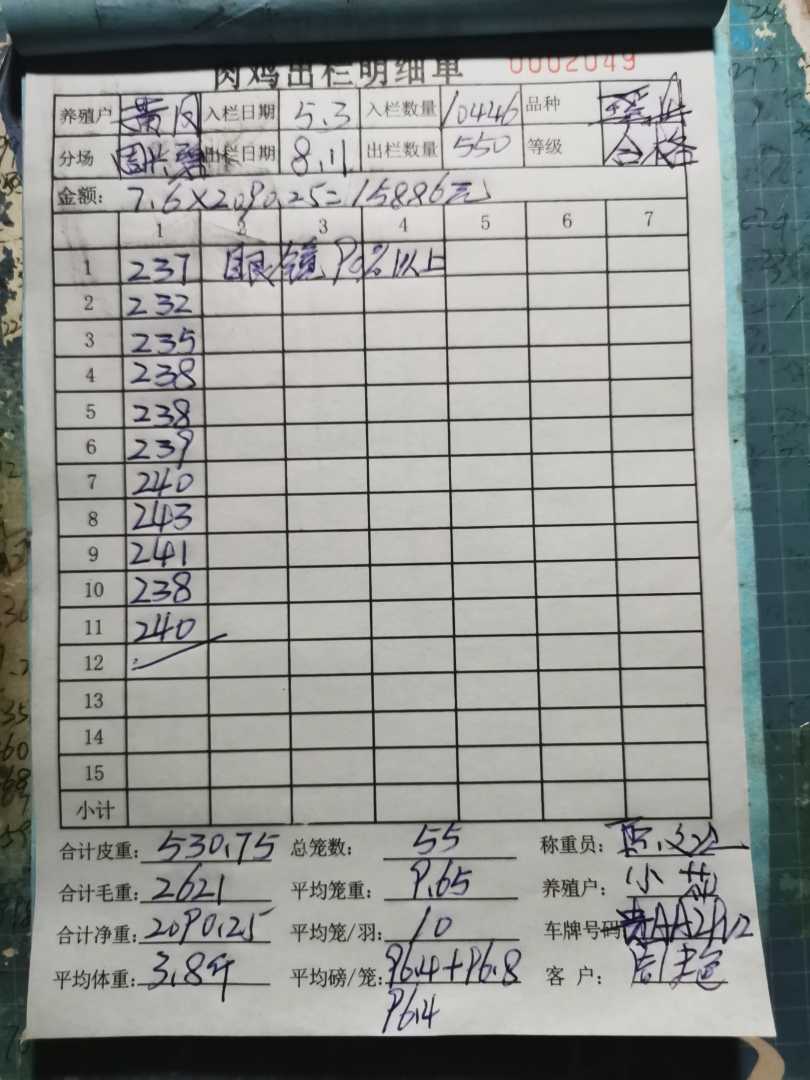 肉鸡出栏明细单 0002049
养殖户 黄 入栏日期 5.3 入栏数量 10446 品种
分场 出栏日期 8.11 出栏数量 550 等级 合格
金额: 7.6×2090.25=15886元
1 2 3 4 5 6 7
1 237 眼镜90%以上
2 232
3 235
4 238
5 238
6 239
7 240
8 243
9 241
10 238
11 240
12
13
14
15
小计
合计皮重: 530.75 总笼数: 55 称重员:
合计毛重: 2621 平均笼重: 9.65 养殖户: 小
合计净重: 2090.25 平均笼/羽: 10 车牌号码
平均体重: 3.8斤 平均磅/笼: 96.4+96.8 客户:
96.4